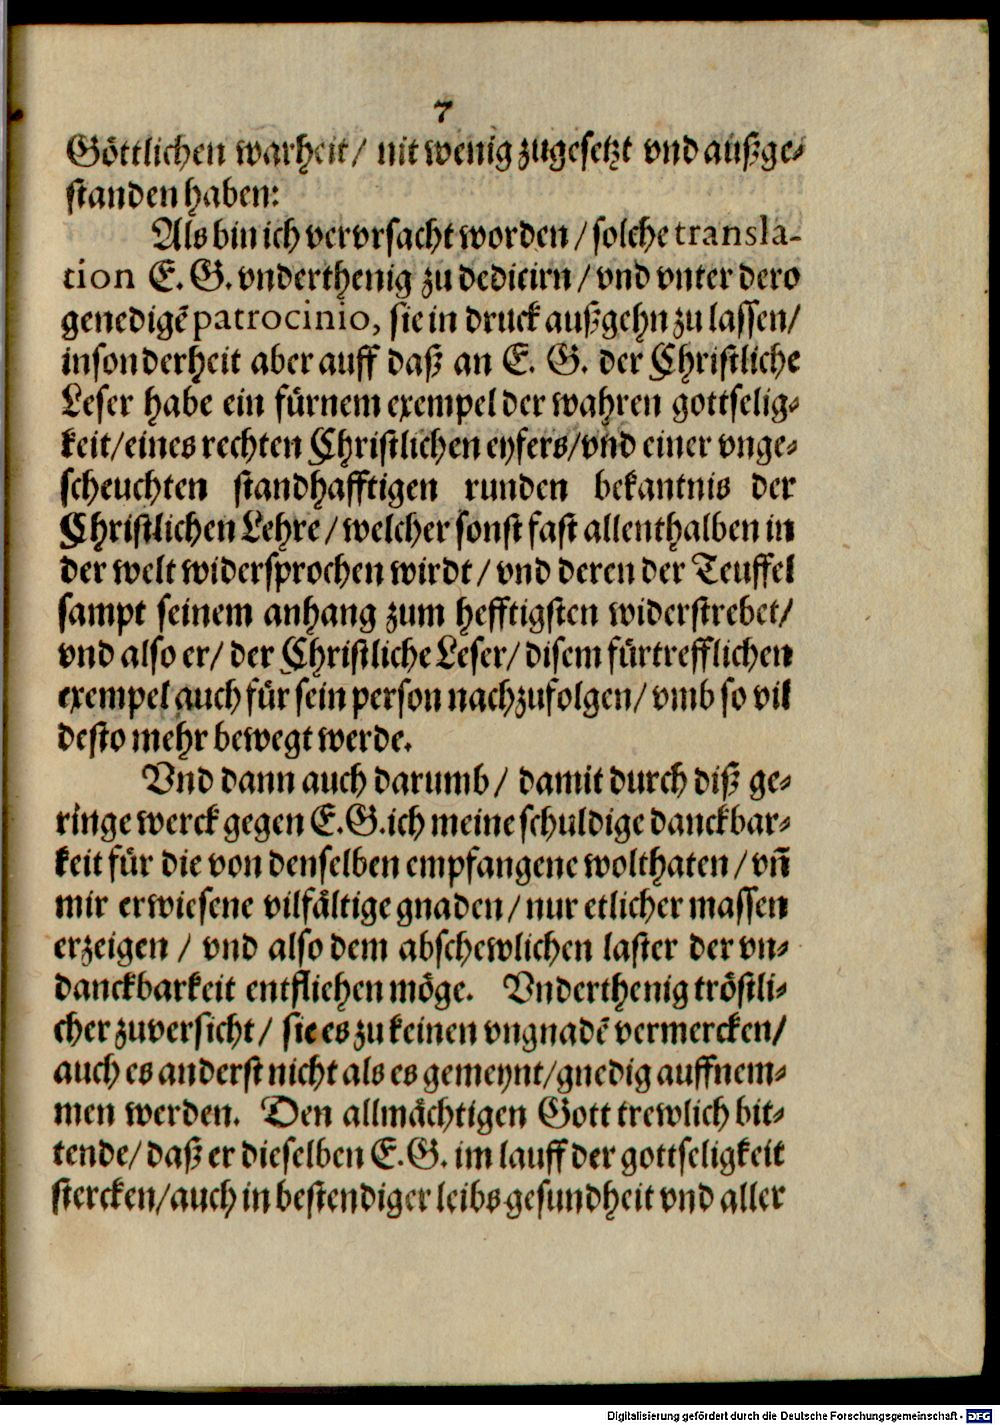 7
Göttlichen warheit/ nit wenig zugesetzt vnd außge-
standen haben:
Als bin ich vervrsacht worden/ solche transla-
tion E. G. vnderthenig zu dedicirn/ vnd vnter dero
genedigē patrocinio, sie in druck außgehn zu lassen/
insonderheit aber auff daß an E. G. der Christliche
Leser habe ein fürnem exempel der wahren gottselig-
keit/ eines rechten Christlichen eyfers/ vnd einer vnge-
scheuchten standhafftigen runden bekantnis der
Christlichen Lehre/ welcher sonst fast allenthalben in
der welt widersprochen wirdt/ vnd deren der Teuffel
sampt seinem anhang zum hefftigsten widerstrebet/
vnd also er/ der Christliche Leser/ disem fürtrefflichen
exempel auch für sein person nachzufolgen/ vmb so vil
desto mehr bewegt werde.
Vnd dann auch darumb/ damit durch diß ge-
ringe werck gegen E. G. ich meine schuldige danckbar-
keit für die von denselben empfangene wolthaten/ vn̄
mir erwiesene vilfältige gnaden/ nur etlicher massen
erzeigen/ vnd also dem abschewlichen laster der vn-
danckbarkeit entfliehen möge. Vnderthenig tröstli-
cher zuversicht/ sie es zu keinen vngnadē vermercken/
auch es anderst nicht als es gemeynt/ gnedig auffnem-
men werden. Den allmächtigen Gott trewlich bit-
tende/ daß er dieselben E. G. im lauff der gottseligkeit
stercken/ auch in bestendiger leibs gesundheit vnd aller
Digitalisierung gefördert durch die Deutsche Forschungsgemeinschaft - DFG